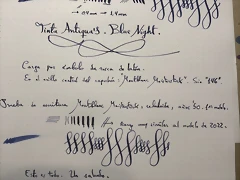 1.9 mm 1.4 mm
Tinta Antiqua's. Blue Night.
Carga por émbolo de rosca de latón.
En el anillo central del capuchón: "Montblanc Masterstück". Sin "146".
Prueba de escritura Montblanc Masterstück, celuloide, años '50.
similar al modelo de 2022.
Esto es todo. Un saludo.